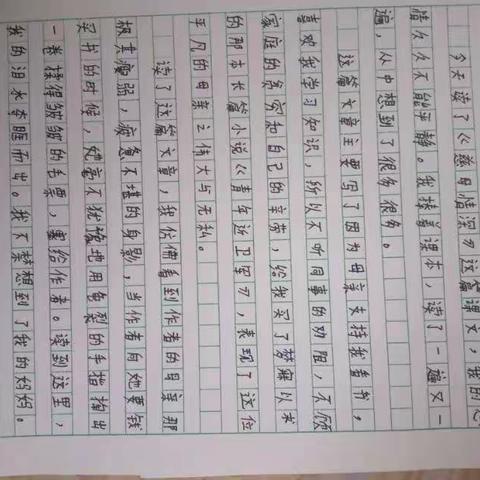 今天读了《慈母情深》这篇课文，我的心
情久久不能平静。我捧着课本，读了一遍又一
遍，从中想到了很多很多。
这篇文章主要写了因为母亲支持我看书，
喜欢我学习知识，所以不听同事的劝阻，不顾
家庭的贫穷和自己的辛劳，给我买了梦寐以求
的那本长篇小说《青年近卫军》，表现了这位
平凡的母亲之伟大与无私。
读了这篇文章，我仿佛看到作者的母亲那
极其瘦弱，疲惫不堪的身影，当作者向她要钱
买书的时候，她毫不犹豫地用龟裂的手指掏出
一卷揉得皱皱的毛票，塞给作者。读到这里，
我的泪水夺眶而出。我不禁想到了我的妈妈。